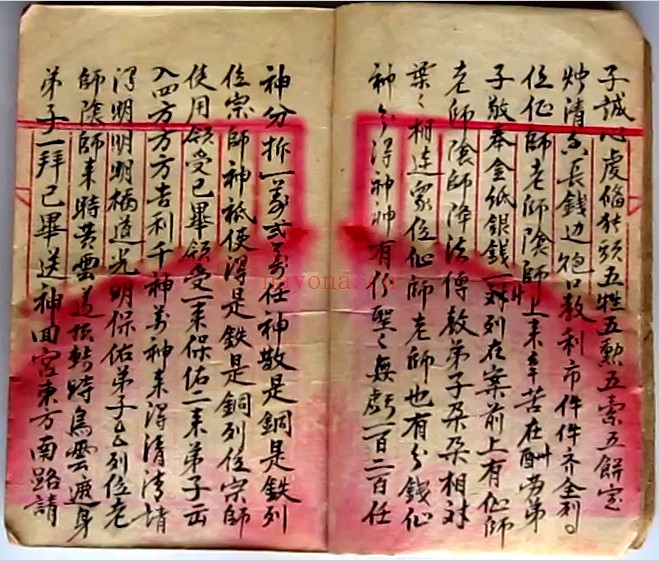 子誠心虔俻猪頭五牲五勲五索五餅定
炉清香長錢边炮口教利市件件齐全列
位仙師老師陰師上来辛苦在酬劳弟
子敬奉金紙銀錢一对列在案前上有仙師
老師陰師降法傳教弟子朶朶相对
葉々相連衆位仙師老師也有分錢仙
神分得神神有分聖々無虧一百二百任
神分折一萬弍萬任神散是銅是鉄列
位宗師神祗使得是鉄是銅列位宗師
使用領受已畢領受一来保佑二来弟子出
入四方方方吉利千神萬神来得清清情
得明明明橋道光明保佑弟子△列位老
師陰師来時黄雲盖頂轉時烏雲遮身
弟子一拜已畢送神回宮東方南路請
nayona.cn